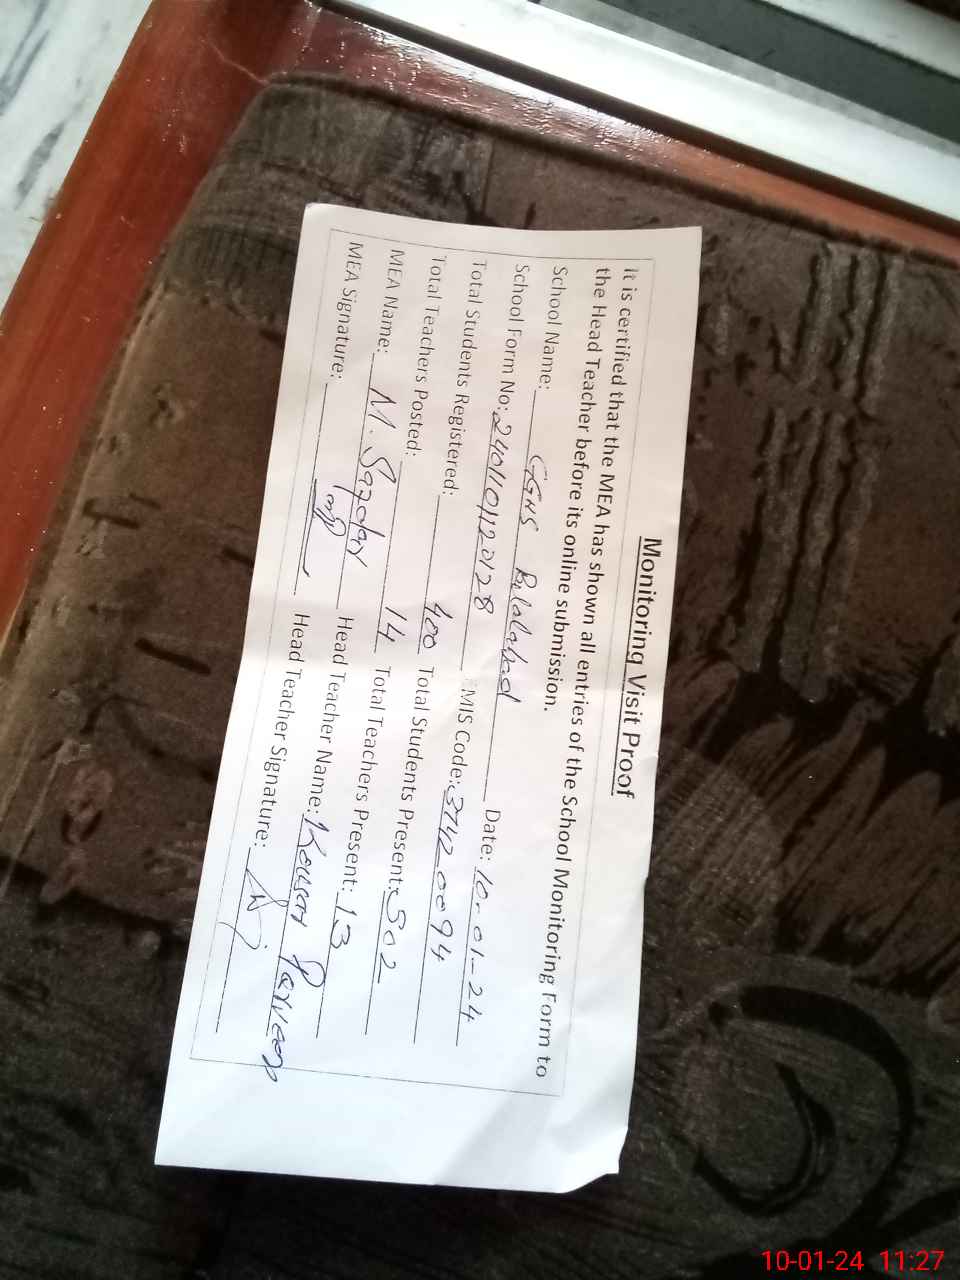 Monitoring Visit Proof
It is certified that the MEA has shown all entries of the School Monitoring Form to
the Head Teacher before its online submission.
School Name: GGHS Bilalabad Date: 10-01-24
School Form No: 240110112128 EMIS Code: 37420094
Total Students Registered: 400 Total Students Present: 302
Total Teachers Posted: 14 Total Teachers Present: 13
MEA Name: M. Safdar Head Teacher Name: Kousar Parveen
MEA Signature: Head Teacher Signature:
10-01-24 11:27